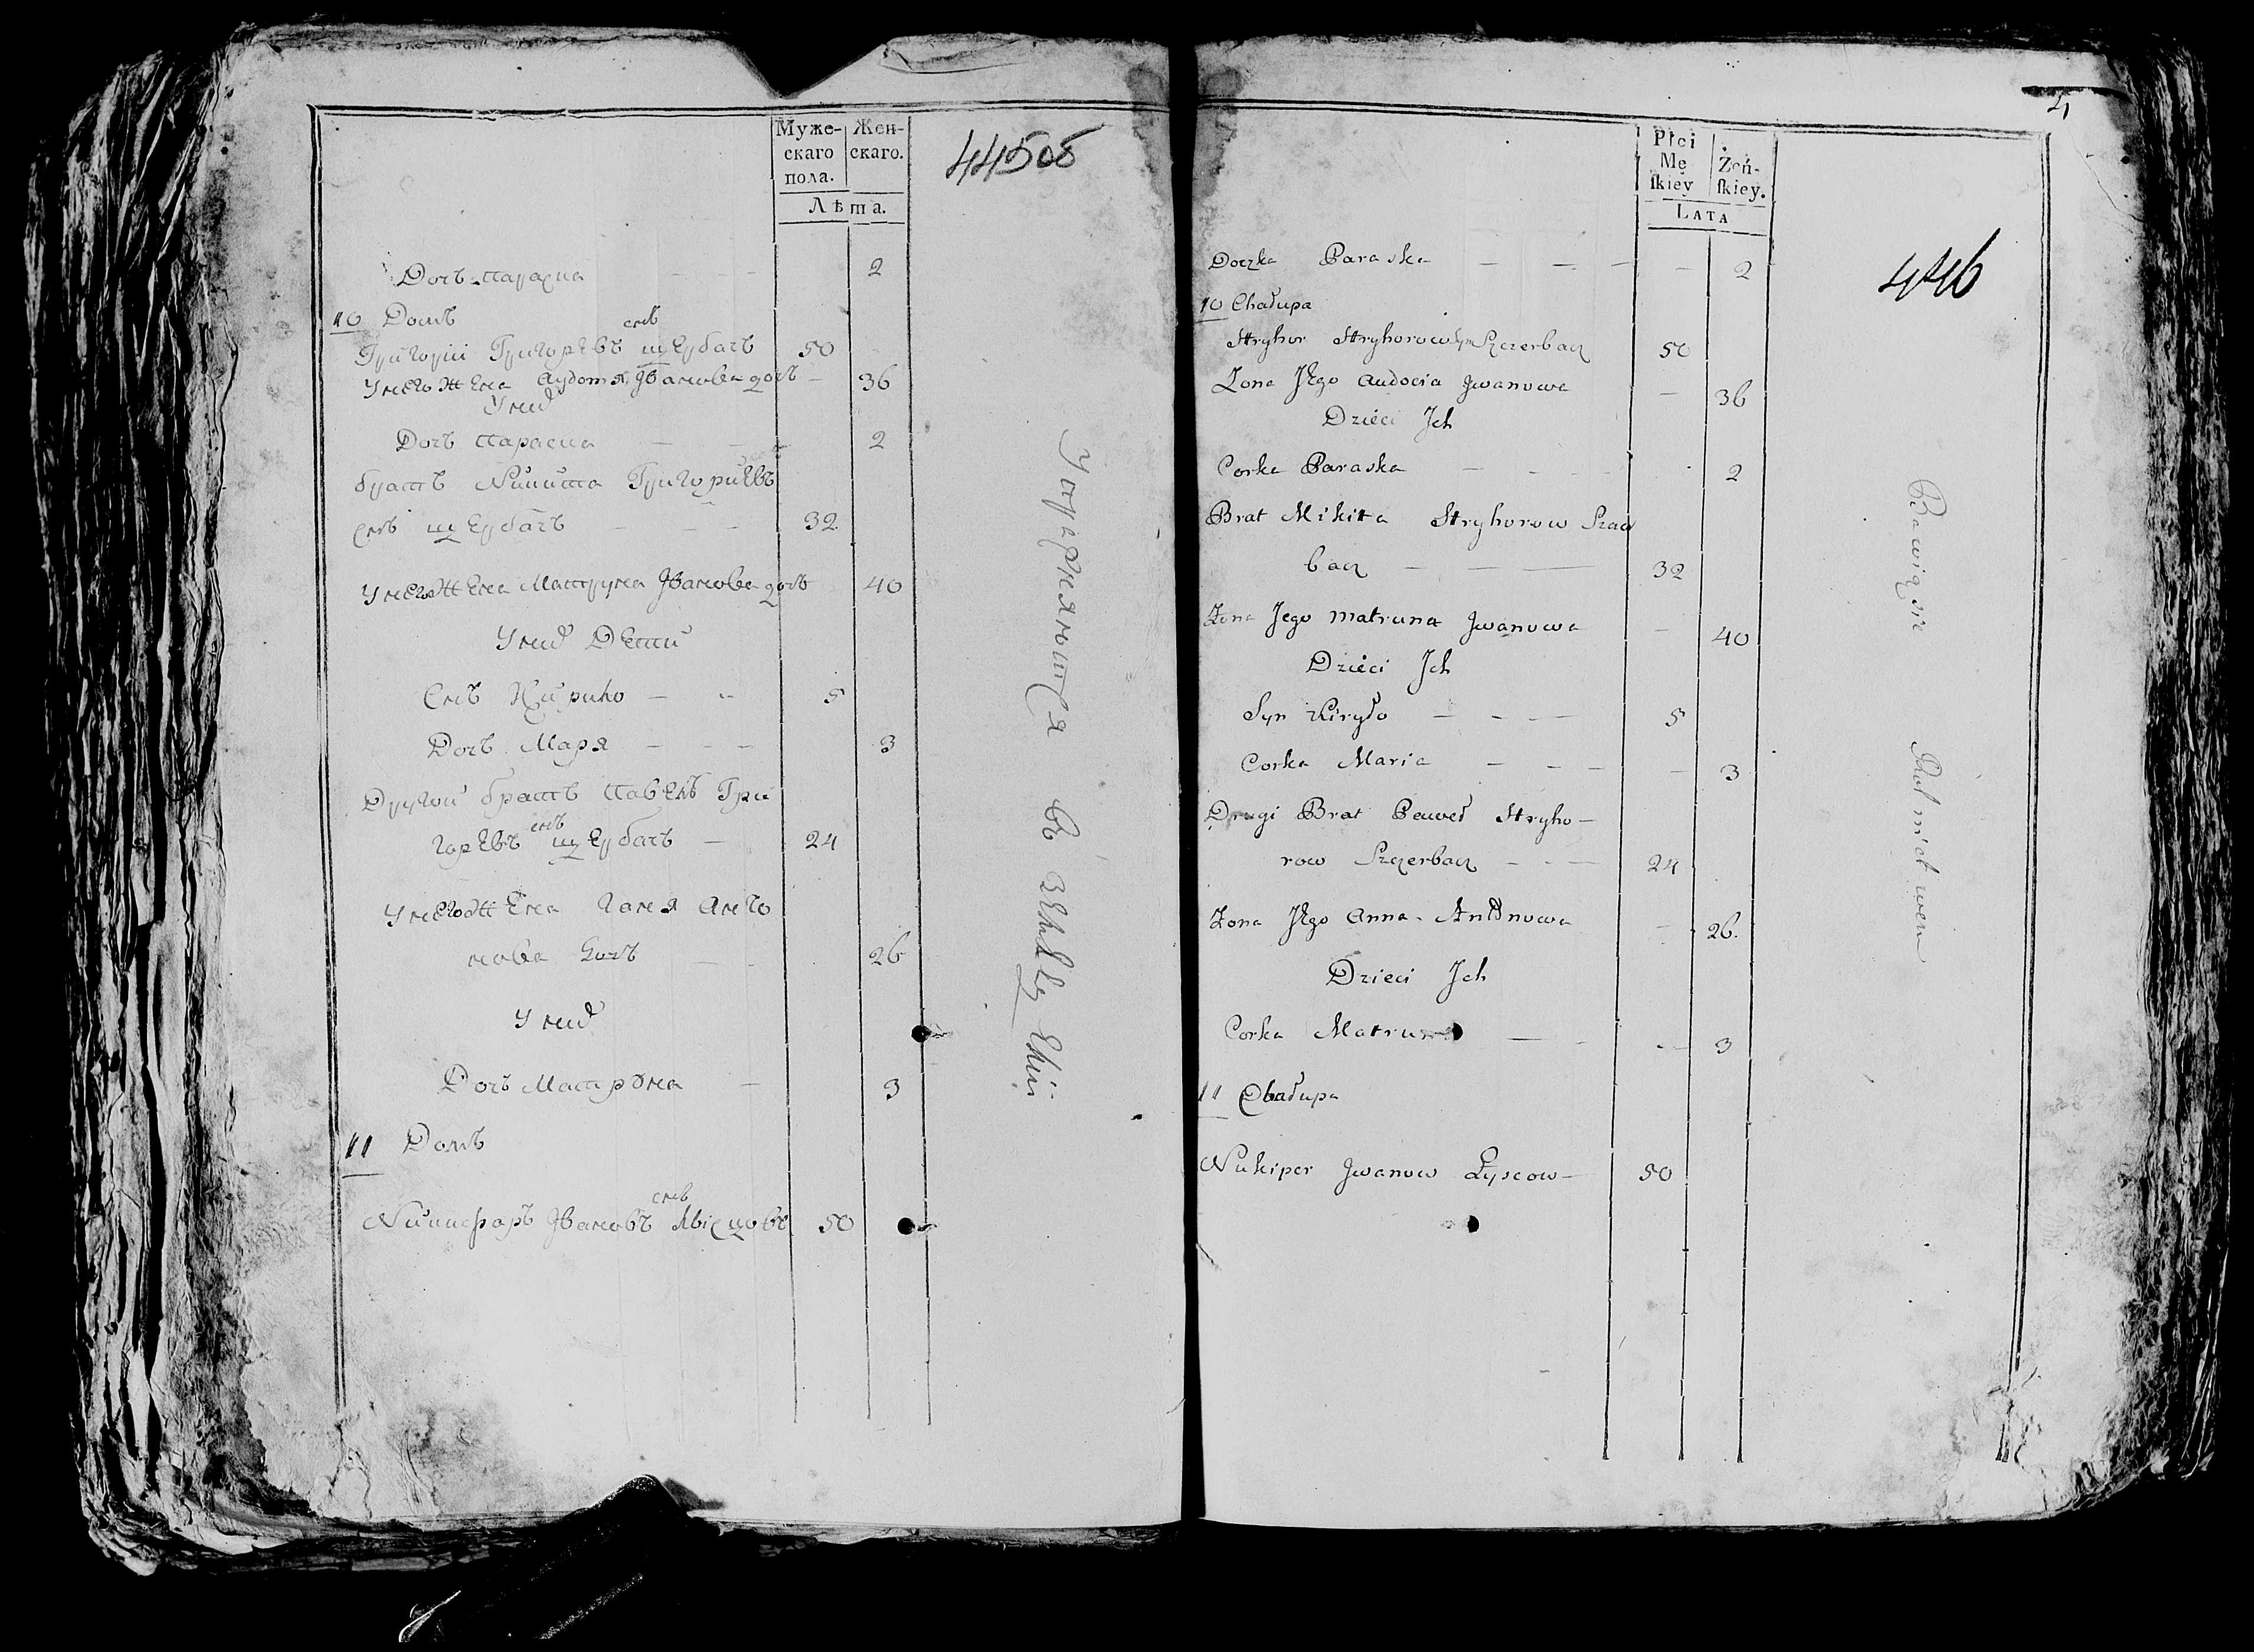 Муже-
скаго
пола.
Жен-
скаго.
Лѣта.
445об
Дочъ параска 2
10 Домъ
Григорiй Григорѣвъ снъ щербачъ 50
У него жена Аудотя Iванова дочъ 36
У них
Дочъ параска 2
братъ Никита Григориевъ
снъ щербачъ 32
У него жена Матруна Iванова дочъ 40
У них Дети
Снъ Кирило 5
Дочъ Маря 3
Другои братъ павелъ Гри
горевъ снъ щербачъ 24
У него жена Ганя Анто
нова дочъ 26
У них
Дочъ Матруна 3
11 Домъ
Никифоръ Iвановъ снъ Лысцовъ 50
Упражняются въ земледелии
4
Płci
Mę
ſkiey
Żeń-
ſkiey.
LATA
446
Doczka Paraska 2
10 Chałupa
Hryhor Hryhorow Syn Szczerbacz 50
Zona Jego Audocia Jwanowa 36
Dzieci Jch
Corka Paraska 2
Brat Mikita Hryhorow Szczer
bacz 32
Zona Jego Matruna Jwanowa 40
Dzieci Jch
Syn Kiryło 5
Corka Maria 3
Drugi Brat Paweł Hryho-
row Szczerbacz 24
Zona Jego Anna Antonowa 26.
Dzieci Jch
Corka Matruna 3
11 Chałupa
Nikiper Jwanow Łyscow 50
Bawią sie Rolnictwem